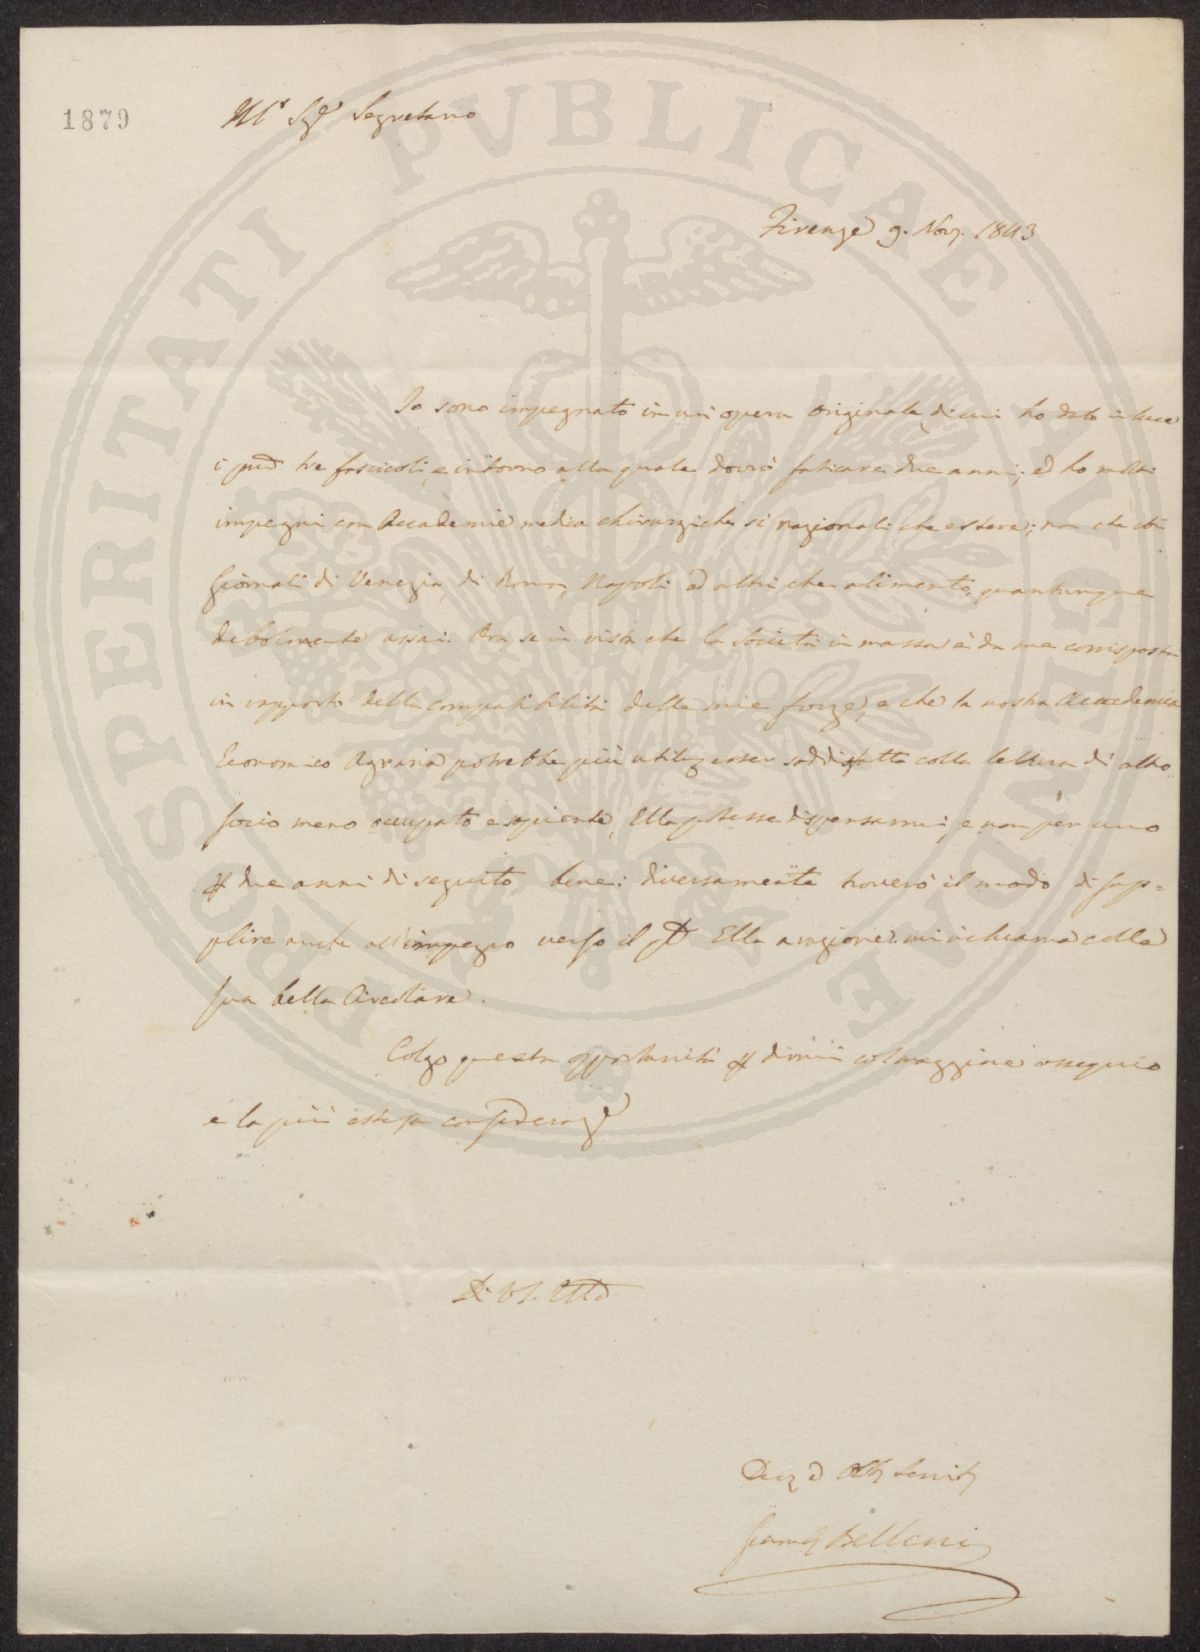 1879
Ill.e Sig.e Segretario
Firenze 9. Nov. 1843
Io sono impegnato in un opera originale, di cui ho dato in luce
i pmi tre fascicoli, e intorno alla quale dovrò faticare due anni; ed ho molti
impegni con Accademie medico chirurgiche, sì nazionali che estere; non che coi
Giornali di Venezia, di Roma, Napoli ed altri che alimento, quantunque
debolmente assai. Ora se in vista che la Società in massa è da me corrisposta
in rapporto della compatibilità delle mie forze, e che la nostra Accademia
Economico Agraria potrebbe più utilm esser soddisfatta colla lettura di altro
socio meno occupato e sapiente, Ella potesse dispensarmi, e non per uno
due anni di seguito, bene: diversamente troverò il modo di sup=
plire anche all'impegno verso il Ella a ragione mi richiama colla
sua bella Circolare.
Colgo questa opportunità dirmi col maggiore ossequio
e la più estesa consideraz.e
Di V.S. Ill.a
Dev. Obb Servit
Giamb Bellini
PROSPERITATI PVBLICAE AVGENDAE